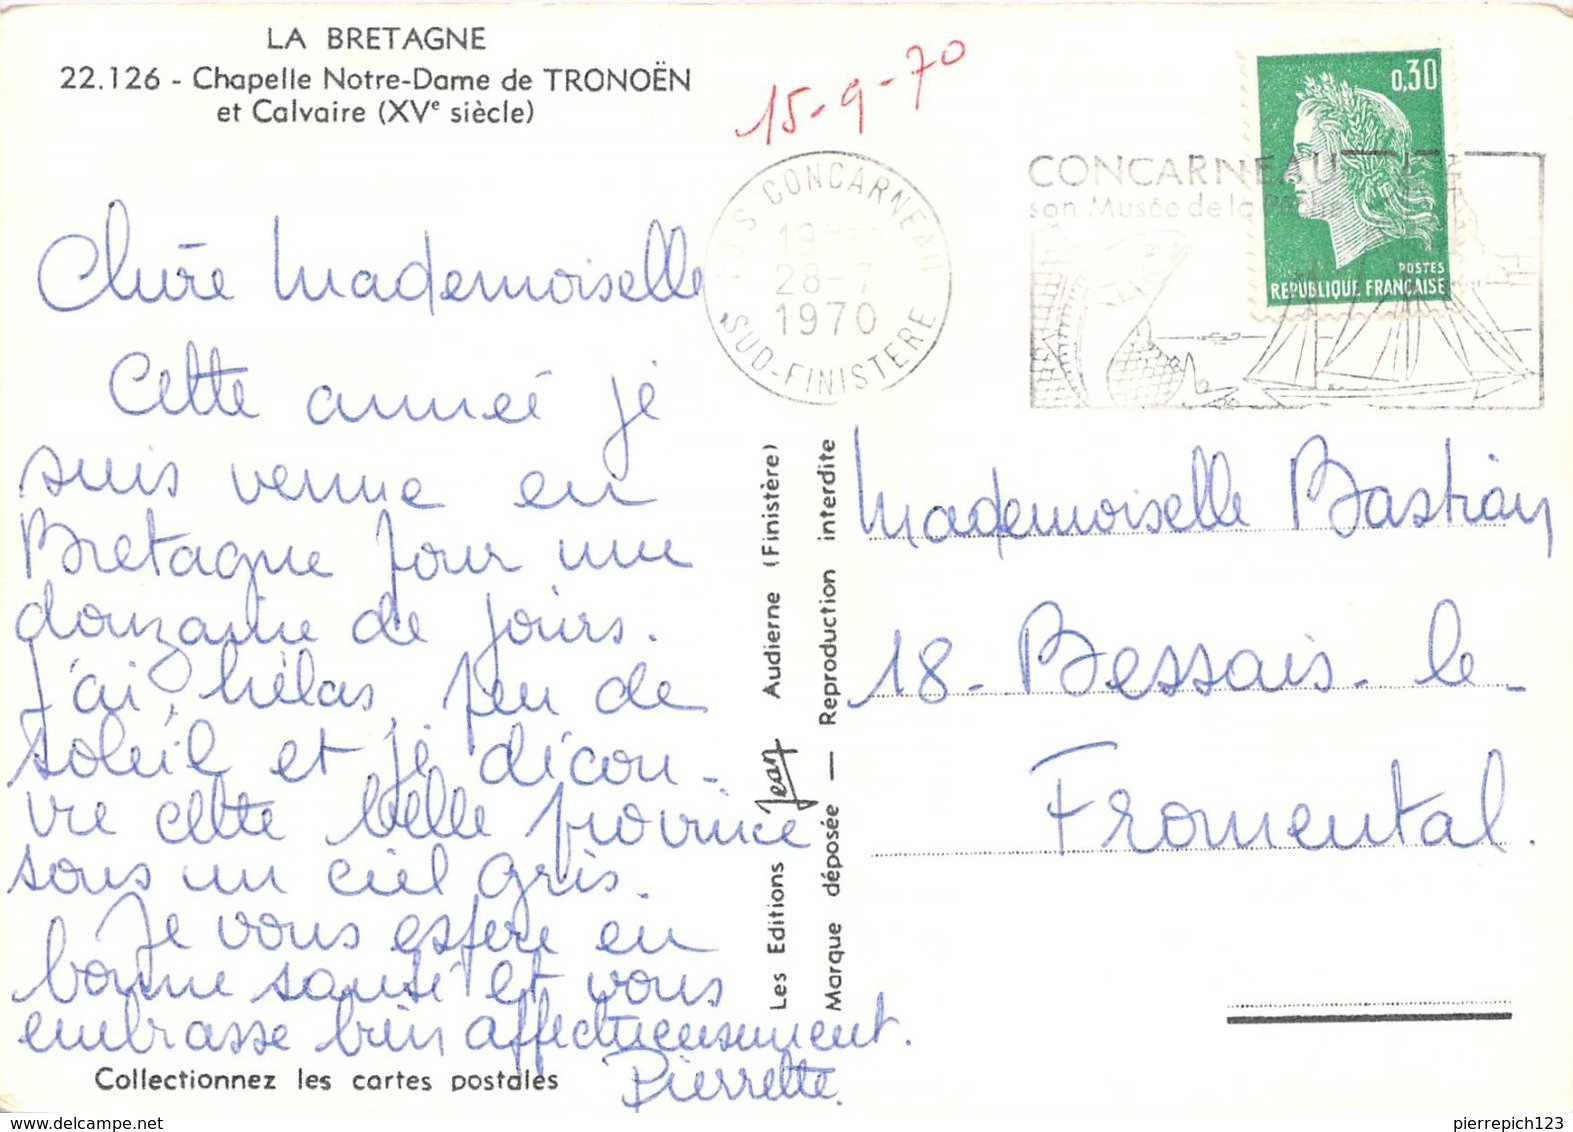 LA BRETAGNE
22.126 - Chapelle Notre-Dame de TRONOËN
et Calvaire (XVe siècle)
15-9-70
0,30
POSTES
REPUBLIQUE FRANÇAISE
CONCARNEAU
19H
28-7
1970
SUD-FINISTERE
CONCARNEAU
son Musée de la Pêche
Chère Mademoiselle
Cette année je
suis venue en
Bretagne pour une
douzaine de jours.
J'ai, hélas, peu de
soleil et je décou-
vre cette belle province
sous un ciel gris.
Je vous espère en
bonne santé et vous
embrasse bien affectueusement.
Pierrette.
Collectionnez les cartes postales
Les Editions Jean Audierne (Finistère)
Marque déposée — Reproduction interdite
Mademoiselle Bastian
18 - Bessais-le-
Fromental.
pierrepich123